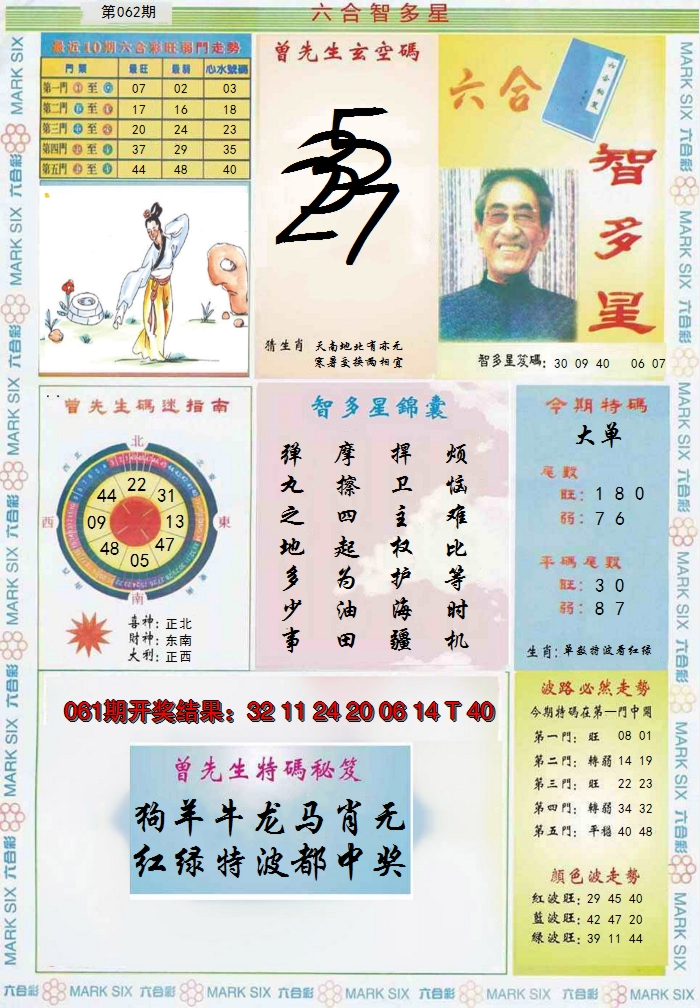 第062期
六合智多星
最近10期六合彩旺弱門走勢
門類 最旺 最弱 心水號碼
第一門 至 07 02 03
第二門 至 17 16 18
第三門 至 20 24 23
第四門 至 37 29 35
第五門 至 44 48 40
曾先生玄空碼
猜生肖 天南地北有亦无
寒暑交换两相宜
六合
六合秘笈
智多星
智多星笈碼: 30 09 40 06 07
曾先生碼迷指南
北
東
南
西
22
31
13
47
05
48
09
44
喜神: 正北
財神: 东南
大利: 正西
智多星錦囊
弹丸之地多少事
摩擦四起为油田
捍卫主权护海疆
烦恼难比等时机
今期特碼
大单
尾數
旺: 1 8 0
弱: 7 6
平碼尾數
旺: 3 0
弱: 8 7
生肖: 单数特波看红绿
061期开奖结果: 32 11 24 20 06 14 T 40
曾先生特碼秘笈
狗羊牛龙马肖无
红绿特波都中奖
波路必然走勢
今期特碼在第一門中開
第一門: 旺 08 01
第二門: 轉弱 14 19
第三門: 旺 22 23
第四門: 轉弱 34 32
第五門: 平穩 40 48
顏色波走勢
红波旺: 29 45 40
藍波旺: 42 47 20
绿波旺: 39 11 44
MARK SIX 六合彩